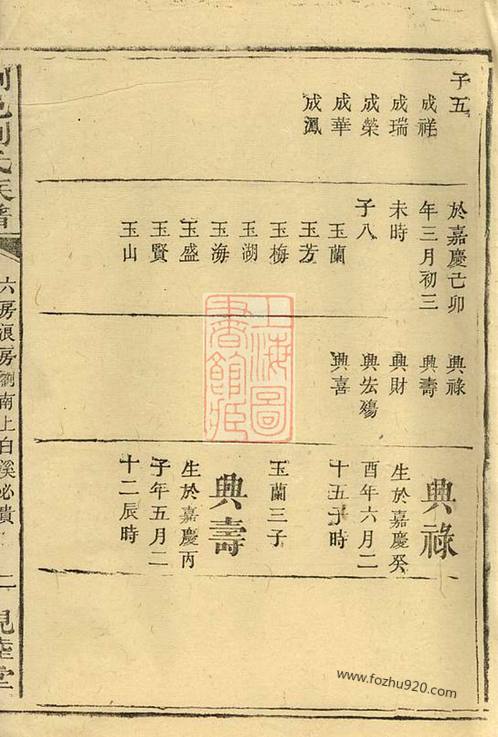 子五
成祥
成瑞
成榮
成華
成鳳
於嘉慶己卯
年三月初三
未時
子八
玉蘭
玉芳
玉梅
玉湖
玉海
玉盛
玉賢
玉山
興祿
興壽
興財
興宏殤
興喜
興祿
生於嘉慶癸
酉年六月二
十五子時
玉蘭三子
興壽
生於嘉慶丙
子年五月二
十二辰時
氏族譜
六房派房劉南上白溪必貴
二
見
堂
上海圖
書館藏
www.fozhu920.com